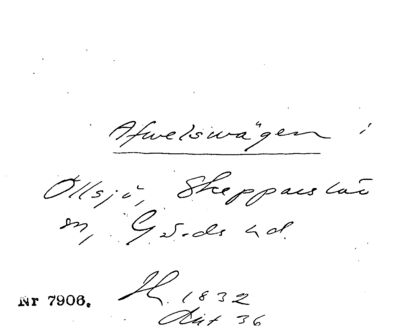 Afwelswägen i
Ollsjö, Skepparslöv
sn, Gärds hd.
Nr 7906. H. 1832
Akt 36